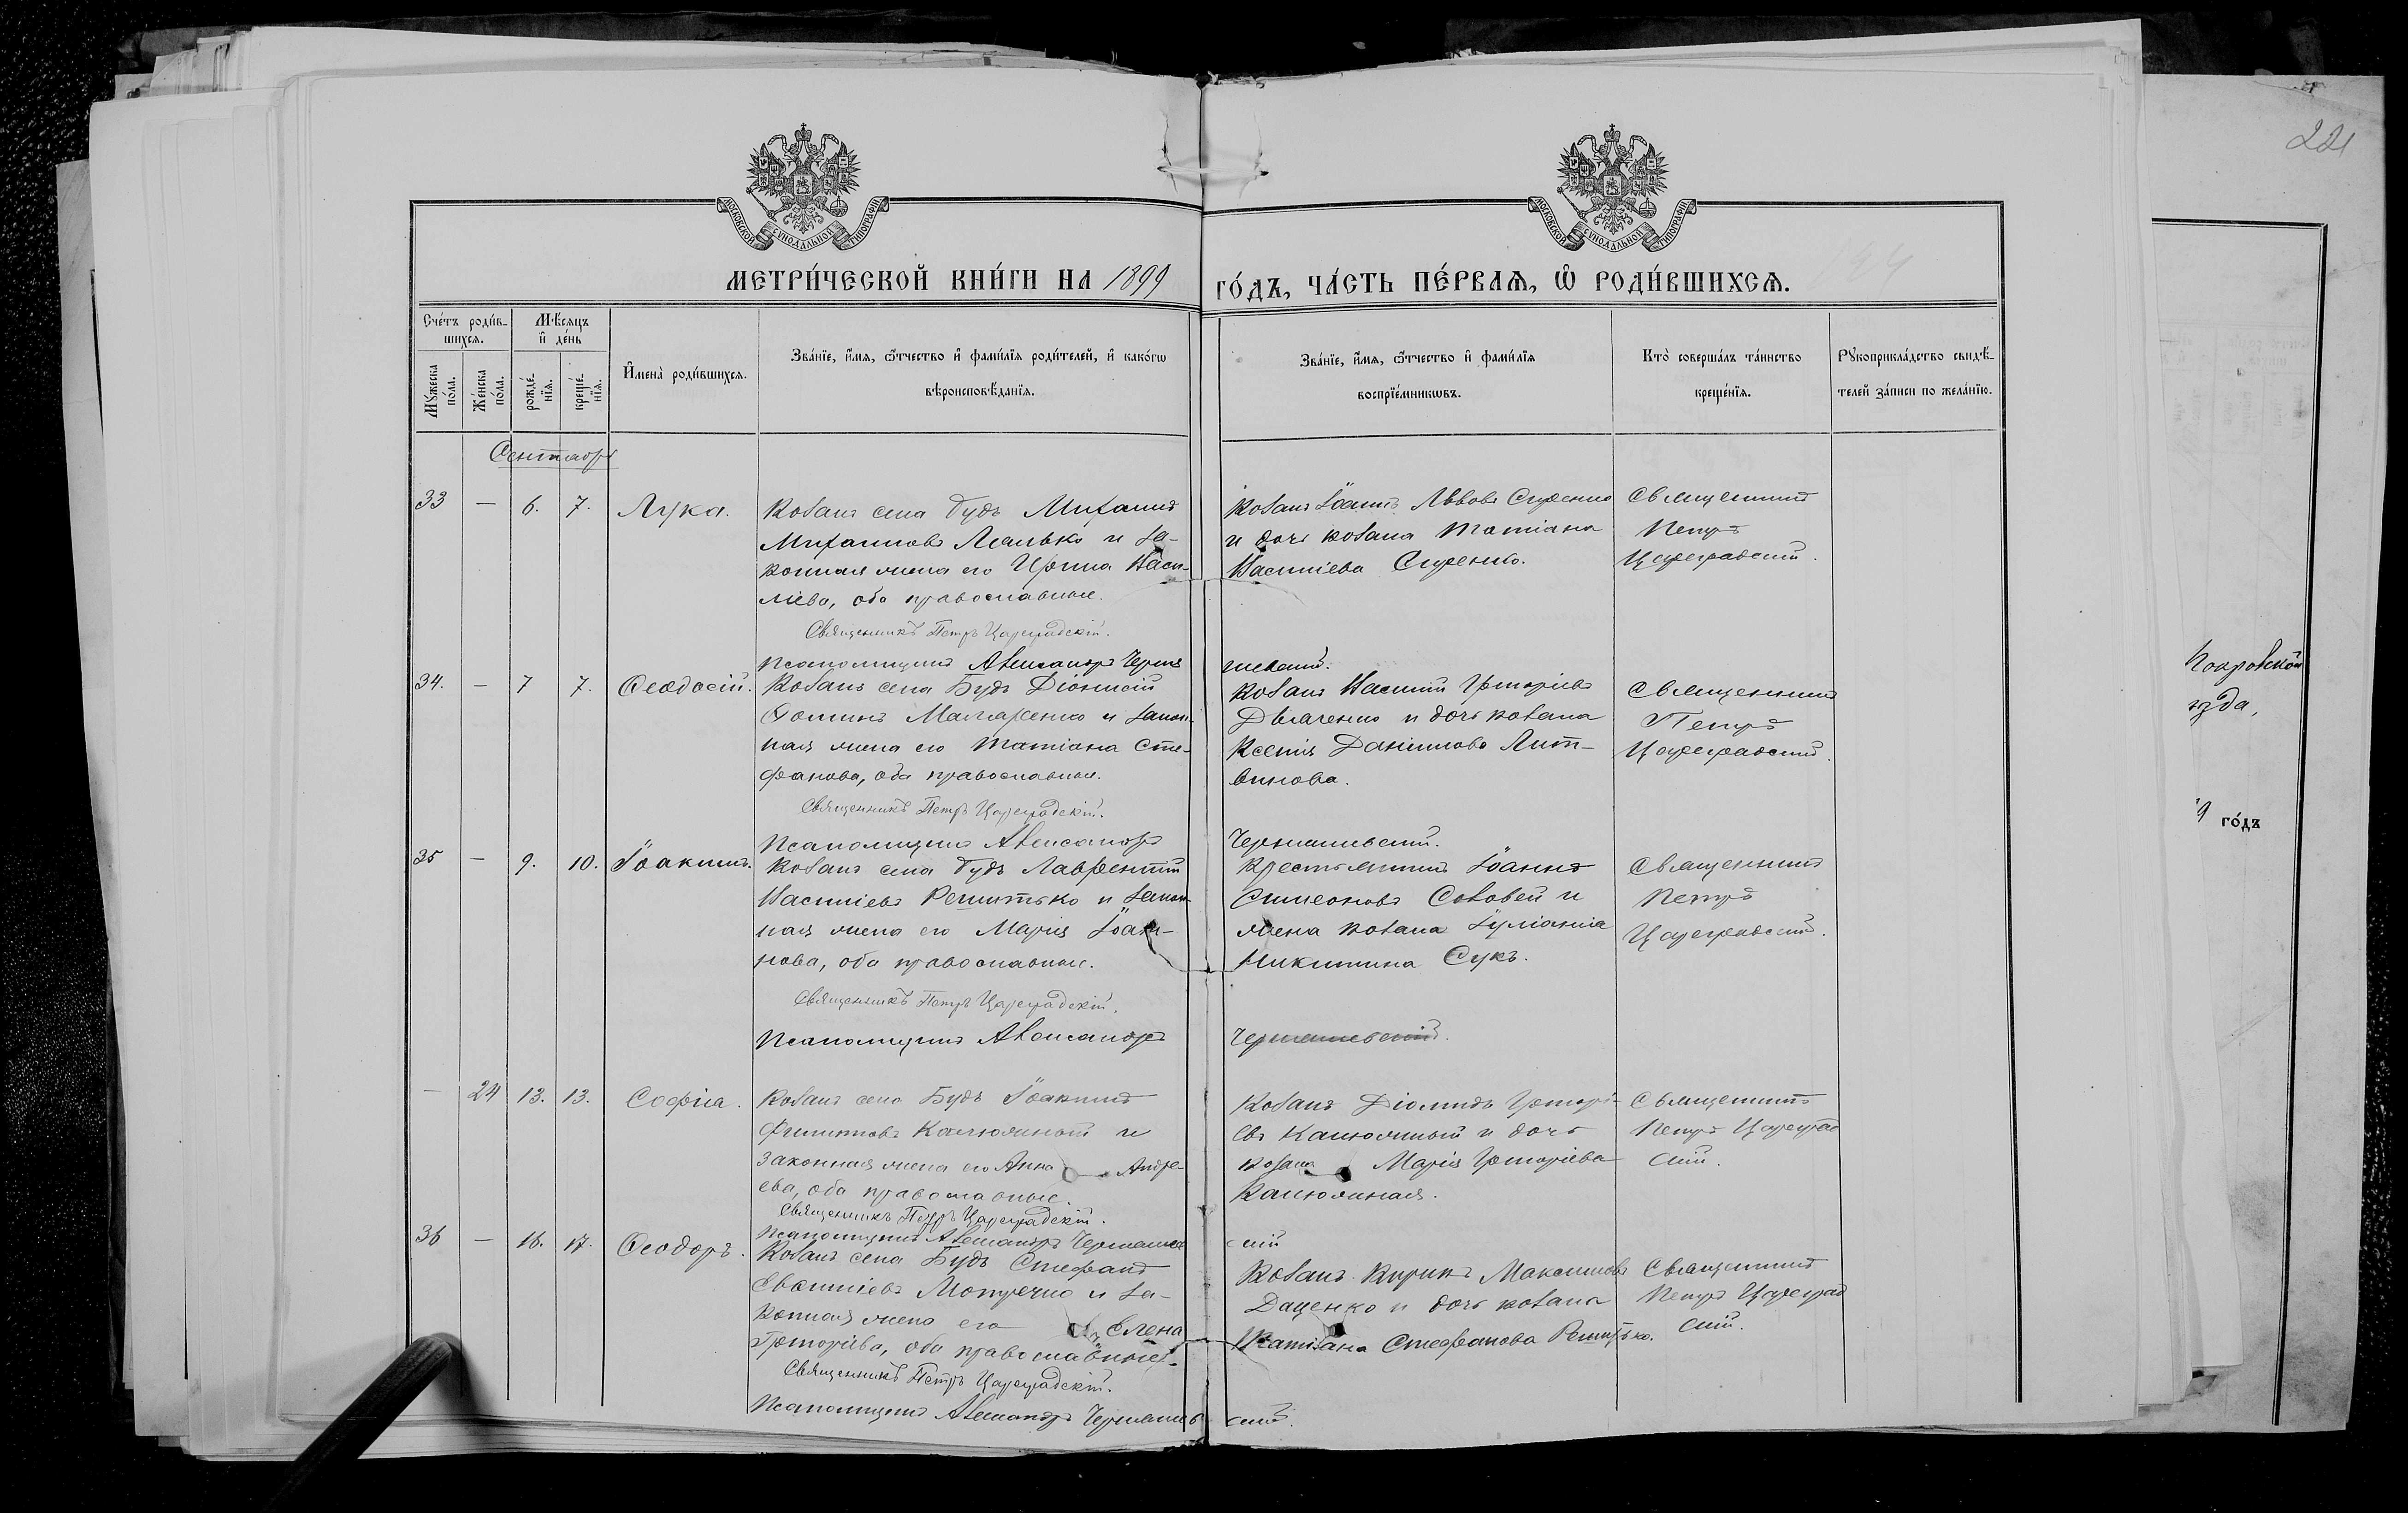 221
МОСКОВСКОЙ СУНОДАЛЬНОЙ ТИПОГРАФІИ
МОСКОВСКОЙ СУНОДАЛЬНОЙ ТИПОГРАФІИ
МЕТРИ́ЧЕСКОЙ КНИ́ГИ НА 1899 ГО́ДЪ, ЧА́СТЬ ПЕ́РВАѦ, Ѡ РОДИ́ВШИХСѦ.
Сче́тъ роди́в-
шихсѧ.
Мꙋжеска по́ла.
Же́нска по́ла.
Мѣ́сѧцъ
и҆ де́нь
рожде́-
нїѧ.
креще́-
нїѧ.
И҆мена̀ роди́вшихсѧ.
Зва́нїе, и҆́мѧ, ѻ҆́тчество и҆ фами́лїѧ роди́телей, и҆ како́гѡ
вѣроисповѣ́данїѧ.
Зва́нїе, и҆́мѧ, ѻ҆́тчество и҆ фами́лїѧ
воспрїе́мникѡвъ.
Кто̀ соверша́лъ та́инство
креще́нїѧ.
Рꙋкоприкла́дство свидѣ́-
телей за́писи по жела́нїю.
Сентябрь
33 — 6. 7. Лука.
Козакъ села Будъ Михаилъ
Михаиловъ Лялько и за-
конная жена его Ирина Васи-
лiева, оба православные.
Священникъ Петръ Цареградскiй.
Псаломщикъ Александръ Черня
шевскiй.
Козакъ Іоаннъ Львовъ Сиренко
и дочь козака Татiана
Василiева Сиренко.
Священникъ
Петръ
Цареградскiй.
34. — 7 7. Ѳеодосiй.
Козакъ села Будъ Дiонисiй
Ѳоминъ Макаренко и закон-
ная жена его Татiана Сте-
фанова, оба православные.
Священникъ Петръ Цареградскiй.
Псаломщикъ Александръ
Чернышевскiй.
Козакъ Василiй Григорiевъ
Дьяченко и дочь козака
Ксенiя Данiилова Лит-
винова.
Священникъ
Петръ
Цареградскiй.
35 — 9. 10. Іоакимъ.
Козакъ села Будъ Лаврентiй
Василiевъ Решитько и закон-
ная жена его Марiя Іоан-
нова, оба православные.
Священникъ Петръ Цареградскiй.
Псаломщикъ Александръ
Чернышевскiй.
Крестьянинъ Іоаннъ
Симеоновъ Соловей и
жена козака Іулiанiа
Никитина Сукъ.
Священникъ
Петръ
Цареградскiй.
— 24 13. 13. Софiя.
Козакъ села Будъ Іоакимъ
Филипповъ Калюжный и
законная жена его Анна Андре-
ева, оба православные.
Священникъ Петръ Цареградскiй.
Псаломщикъ Александръ Чернышев
скiй
Козакъ Дiомидъ Григорi-
евъ Калюжный и дочь
козака Марiя Григорiева
Калюжная.
Священникъ
Петръ Цареград
скiй.
36 — 16. 17. Ѳеодоръ.
Козакъ села Будъ Стефанъ
за-
конная жена его Елена
Григорiева, оба православные.
Священникъ Петръ Цареградскiй.
Псаломщикъ Александръ Чернышев
скiй.
Козакъ Кирикъ Максимовъ
Даценко и дочь козака
Татiана Стефанова Решитько.
Священникъ
Петръ Цареград
скiй.
Покровской
ѣзда,
9 го́дъ